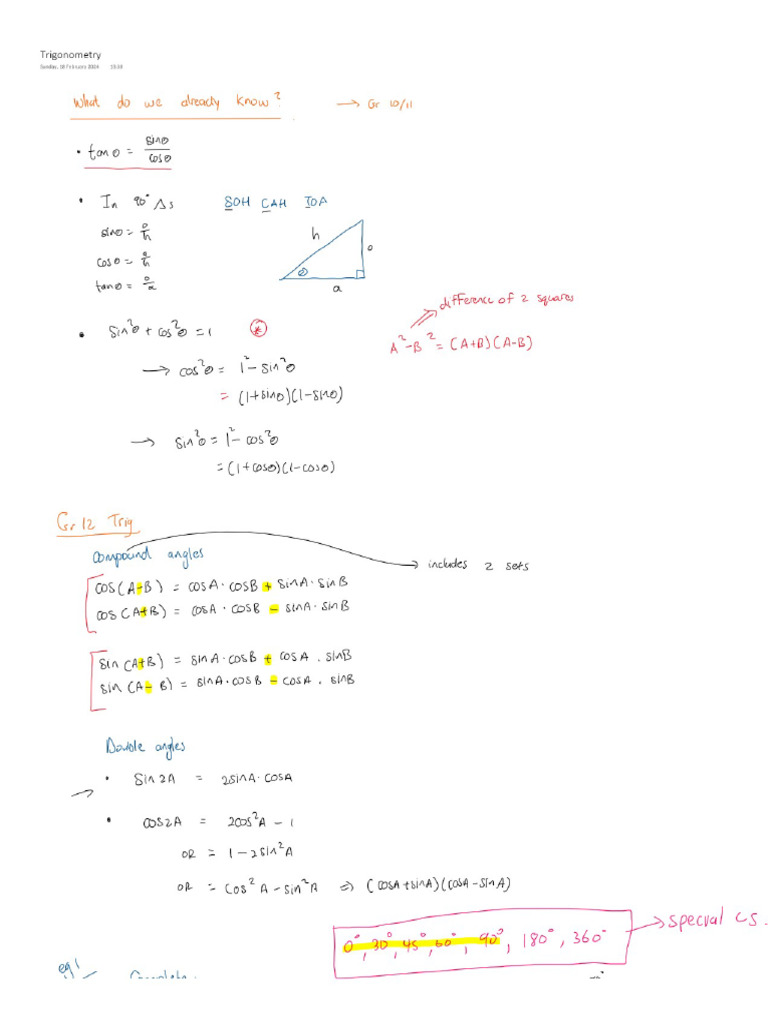 Trigonometry
Sunday, 18 February 2024
What do we already know? → Gr 10/11
• tanθ = sinθ/cosθ
• In 90° Δs SOH CAH TOA
sinθ = o/h
cosθ = a/h
tanθ = o/a
h
o
θ
a
• sin²θ + cos²θ = 1 ⊛
→ cos²θ = 1² - sin²θ
= (1+sinθ)(1-sinθ)
→ sin²θ = 1² - cos²θ
= (1+cosθ)(1-cosθ)
difference of 2 squares
A² - B² = (A+B)(A-B)
Gr 12 Trig
Compound angles → includes 2 sets
cos(A-B) = cosA · cosB + sinA · sinB
cos(A+B) = cosA · cosB - sinA · sinB
sin(A+B) = sinA · cosB + cosA . sinB
sin(A-B) = sinA · cosB - cosA . sinB
Double angles
• sin2A = 2sinA · cosA
→
• cos2A = 2cos²A - 1
OR = 1 - 2sin²A
OR = cos²A - sin²A ⇒ (cosA + sinA)(cosA - sinA)
0°, 30°, 45°, 60°, 90°, 180°, 360° → special ∠s.
eg!